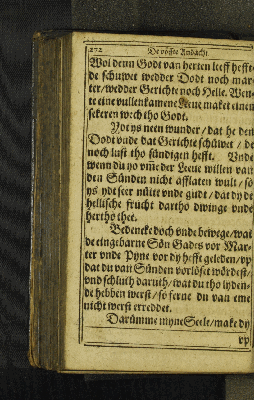 272 De vöffte Andacht.
Wol denn Godt van herten lieff hefft/
de schuwet wedder Dodt noch mar-
ter/wedder Gerichte noch Helle. Wen-
te eine vullenkamene Leue maket einen
sekeren wech tho Godt.
Ydt ys neen wunder/dat he den
Dodt vnde dat Gerichte schüwet/de
noch lust tho sündigen hefft. Vnde
wenn du yo vmme der Leeue willen van
den Sünden nicht afflaten wult/so
ys ydt seer nütte vnde gudt/dat dy de
hellische frucht dartho dwinge vnde
hertho thee.
Bedencke doch vnde bewege/wat
de eingebarne Sön Gades vor Mar-
ter vnde Pyne vor dy hefft geleden/vp
dat du van Sünden vorlöset wördest/
vnd schluth daruth/wat du tho lyden-
de hebben werst/so ferne du van eme
nicht werst erreddet.
Darümme myne Seele/make dy
vp